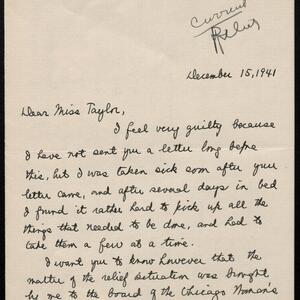 current
December 15, 1941
Dear Miss Taylor,
I feel very guilty because
I have not sent you a letter long before
this, but I was taken sick soon after your
letter came, and after several days in bed
I found it rather hard to pick up all the
things that needed to be done, and had to
take them a few at a time.
I want you to know however that the
matter of the relief situation was brought
by me to the board of the Chicago Woman's